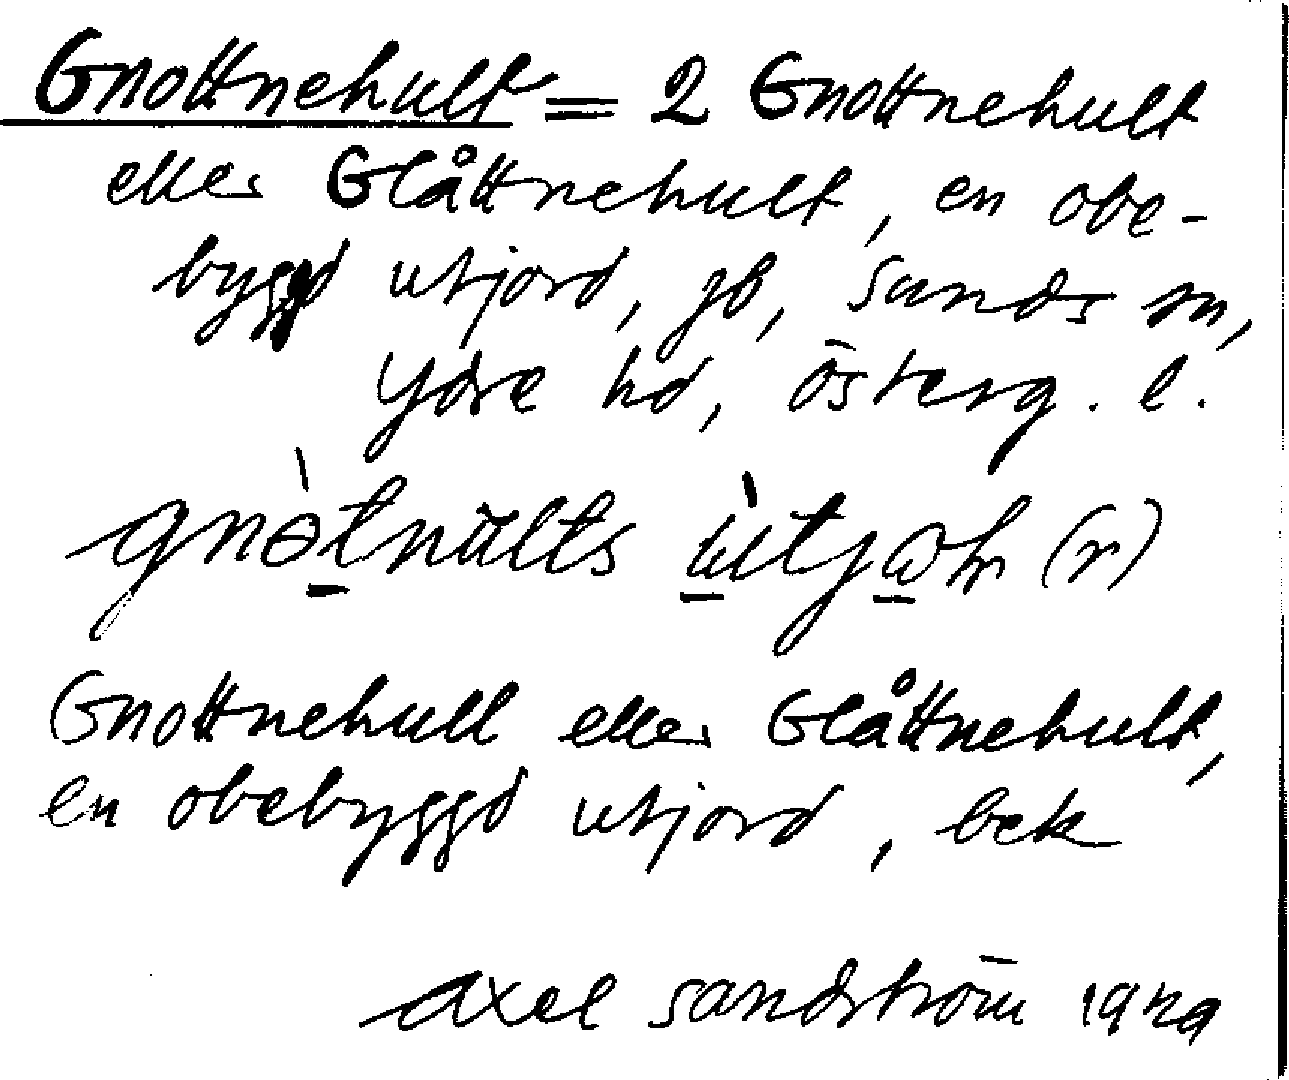 Gnottnehult = 2 Gnottnehult
eller Glåttnehult, en obe-
byggd utjord, jb, Sunds sn,
Ydre hd, Österg. l.
gnòtnults ùtjωɦ (r)
Gnottnehult eller Glåttnehult,
en obebyggd utjord, bek
Axel Sandström 1929